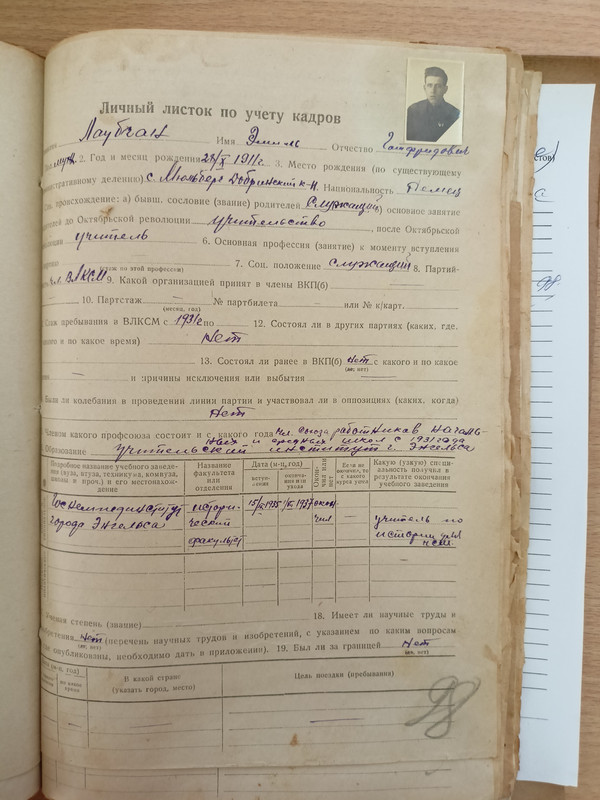 Личный листок по учету кадров
Лаубган Имя Эмиль Отчество Готфридович
2. Год и месяц рождения 28/X 1911 г. 3. Место рождения (по существующему
административному делению) с. Мюльберг Добринский к-н. Национальность Немец
Соц. происхождение: а) бывш. сословие (звание) родителей Служащий основное занятие
родителей до Октябрьской революции учительство, после Октябрьской
революции учитель 6. Основная профессия (занятие) к моменту вступления
7. Соц. положение служащий 8. Партий-
(стаж по этой профессии)
чл. ВЛКСМ 9. Какой организацией принят в члены ВКП(б)
10. Партстаж № партбилета или № к/карт.
(месяц, год)
пребывания в ВЛКСМ с 1931 по 12. Состоял ли в других партиях (каких. где.
и по какое время) Нет
13. Состоял ли ранее в ВКП(б) нет с какого и по какое
(да, нет)
и причины исключения или выбытия
Были ли колебания в проведении линии партии и участвовал ли в оппозициях (каких. когда)
Нет
Членом какого профсоюза состоит и с какого года чл. союза работников началь-
ных и средних школ с 1931 года
Образование учительский институт г. Энгельса
Подробное название учебного заведе-
ния (вуза, втуза, техникума, комвуза,
школы и проч.) и его местонахож-
дение
Название факультета или отделения
Дата (м-ц, год)
вступ-
ления
окончание или ухода
Окон-
чил или нет
Если не окончил, то с какого курса ушел
Какую (узкую) специ-
альность получил в результате окончания учебного заведения
Госнемпединститут истори- 15/IX 1935 1937 окон-
города Энгельса ческий чил учитель по
факульт истории для
НСШ.
степень (звание) 18. Имеет ли научные труды и
изобретения нет (перечень научных трудов и изобретений, с указанием по каким вопросам
(да, нет)
опубликованы, необходимо дать в приложении). 19. Был ли за границей Нет
(да, нет)
(м-ц, год)
В какой стране
(указать город, место)
Цель поездки (пребывания)
98